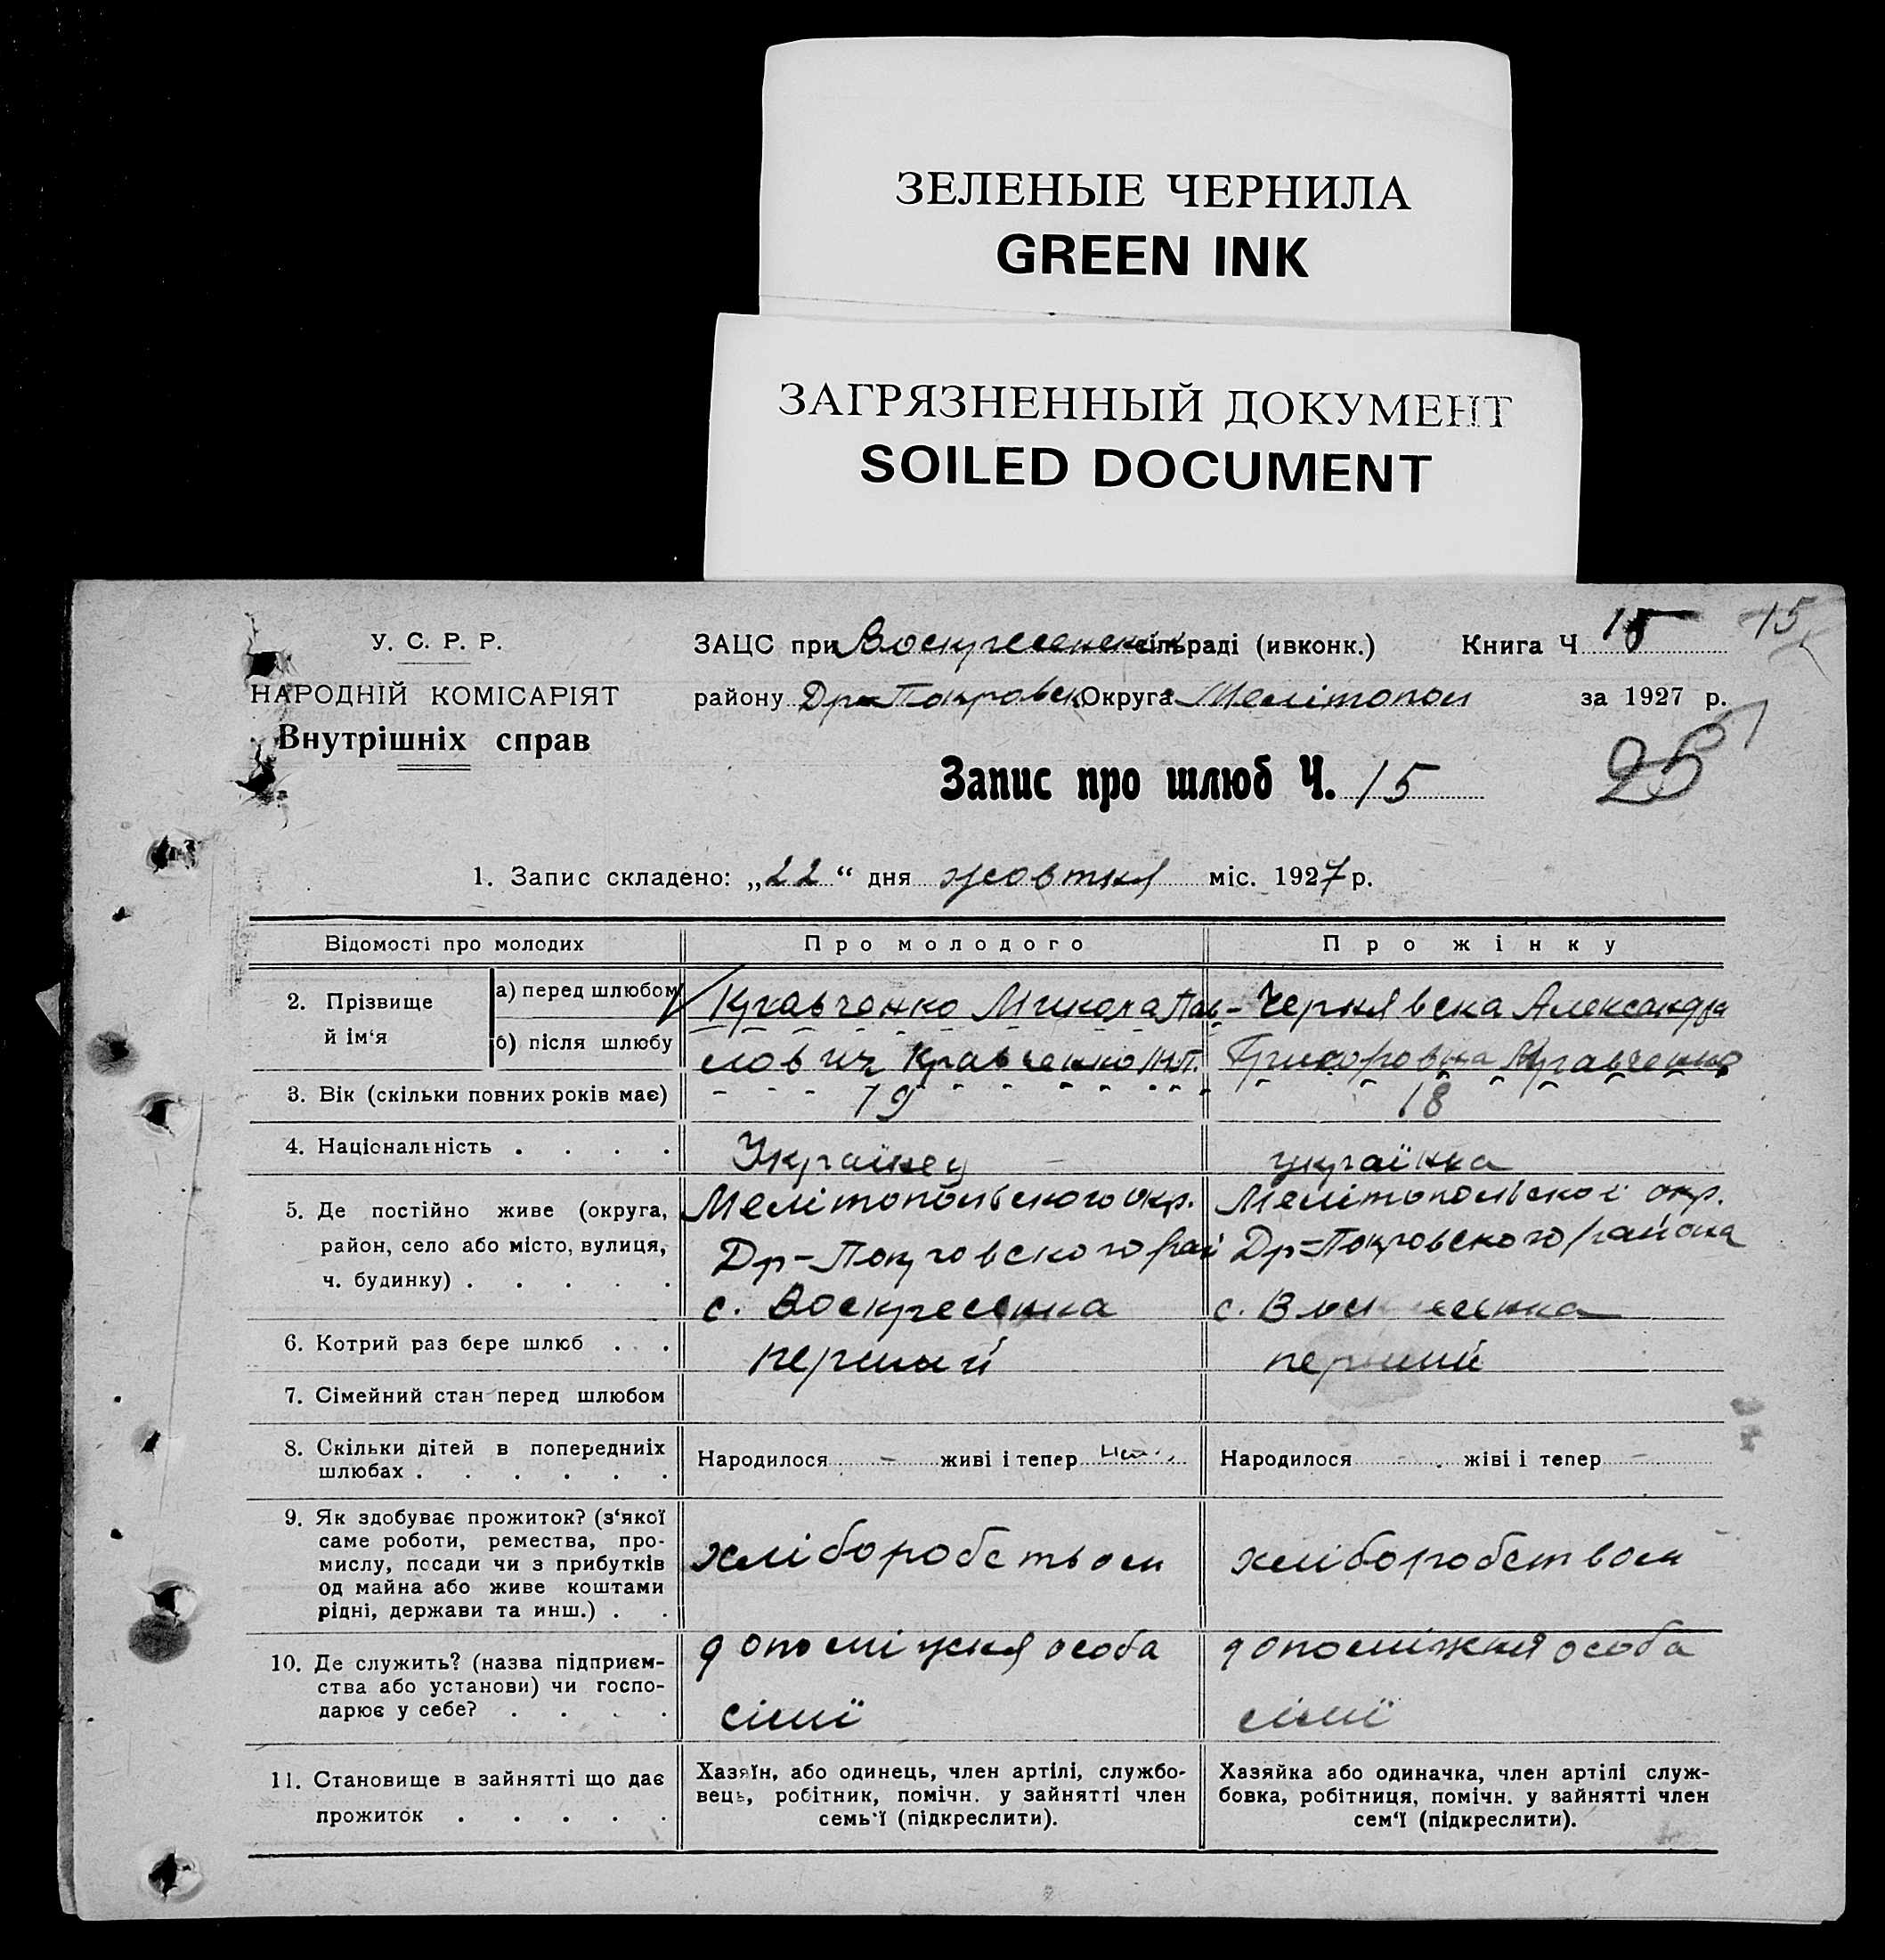 ЗЕЛЕНЫЕ ЧЕРНИЛА
GREEN INK
ЗАГРЯЗНЕННЫЙ ДОКУМЕНТ
SOILED DOCUMENT
У. С. Р. Р.
НАРОДНІЙ КОМІСАРІЯТ
Внутрішніх справ
ЗАЦС при Воскресенській сільраді (ивконк.) Книга Ч 15 15
району Др-Покровськ Округа Мелітопол за 1927 р.
25
Запис про шлюб Ч. 15
1. Запис складено: „22“ дня жовтня міс. 1927 р.
Відомості про молодих Про молодого Про жінку
2. Прізвище й ім‘я
а) перед шлюбом
б) після шлюбу
Кравченко Микола Пав-
лович Кравченко М.П.
Чернявска Александра
Григоровна Кравченко
3. Вік (скільки повних років має) 19 18
4. Національність . . . . Українец українка
5. Де постійно живе (округа,
район, село або місто, вулиця,
ч. будинку) . . . . .
Мелітопольского окр.
Др-Покровского рай
с. Воскресенка
Мелітопольскої окр.
Др=Покровского района
с. Воскресенка
6. Котрий раз бере шлюб . . первый перший
7. Сімейний стан перед шлюбом
8. Скільки дітей в попередниіх
шлюбах . . . . . .
Народилося - живі і тепер
Народилося - жіві і тепер -
9. Як здобуває прожиток? (з‘якої
саме роботи, ремества, про-
мислу, посади чи з прибутків
од майна або живе коштами
рідні, держави та инш.) . .
хліборобством
хліборобством
10. Де служить? (назва підприєм-
ства або установи) чи госпо-
дарює у себе? . . . .
допоміжня особа
сімї
допоміжня особа
сімї
11. Становище в зайнятті що дає
прожиток . . . . .
Хазяїн, або одинець, член артілі, службо-
вець, робітник, помічн. у зайнятті член
семь‘ї (підкреслити).
Хазяйка або одиначка, член артілі служ-
бовка, робітниця, помічн. у зайнятті член
сем‘ї (підкреслити).